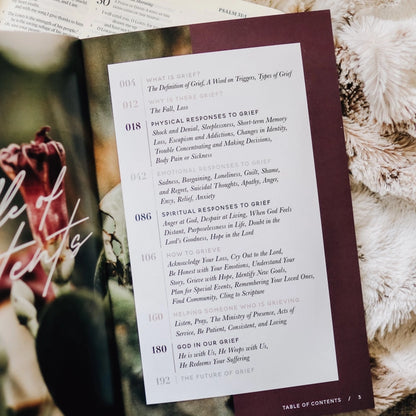 PSALM 33:7
Table of
Contents
004 WHAT IS GRIEF?
The Definition of Grief, A Word on Triggers, Types of Grief
012 WHY IS THERE GRIEF?
The Fall, Loss
018 PHYSICAL RESPONSES TO GRIEF
Shock and Denial, Sleeplessness, Short-term Memory
Loss, Escapism and Addictions, Changes in Identity,
Trouble Concentrating and Making Decisions,
Body Pain or Sickness
042 EMOTIONAL RESPONSES TO GRIEF
Sadness, Bargaining, Loneliness, Guilt, Shame,
and Regret, Suicidal Thoughts, Apathy, Anger,
Envy, Relief, Anxiety
086 SPIRITUAL RESPONSES TO GRIEF
Anger at God, Despair at Living, When God Feels
Distant, Purposelessness in Life, Doubt in the
Lord's Goodness, Hope in the Lord
106 HOW TO GRIEVE
Acknowledge Your Loss, Cry Out to the Lord,
Be Honest with Your Emotions, Understand Your
Story, Grieve with Hope, Identify New Goals,
Plan for Special Events, Remembering Your Loved Ones,
Find Community, Cling to Scripture
160 HELPING SOMEONE WHO IS GRIEVING
Listen, Pray, The Ministry of Presence, Acts of
Service, Be Patient, Consistent, and Loving
180 GOD IN OUR GRIEF
He is with Us, He Weeps with Us,
He Redeems Your Suffering
192 THE FUTURE OF GRIEF
TABLE OF CONTENTS / 3